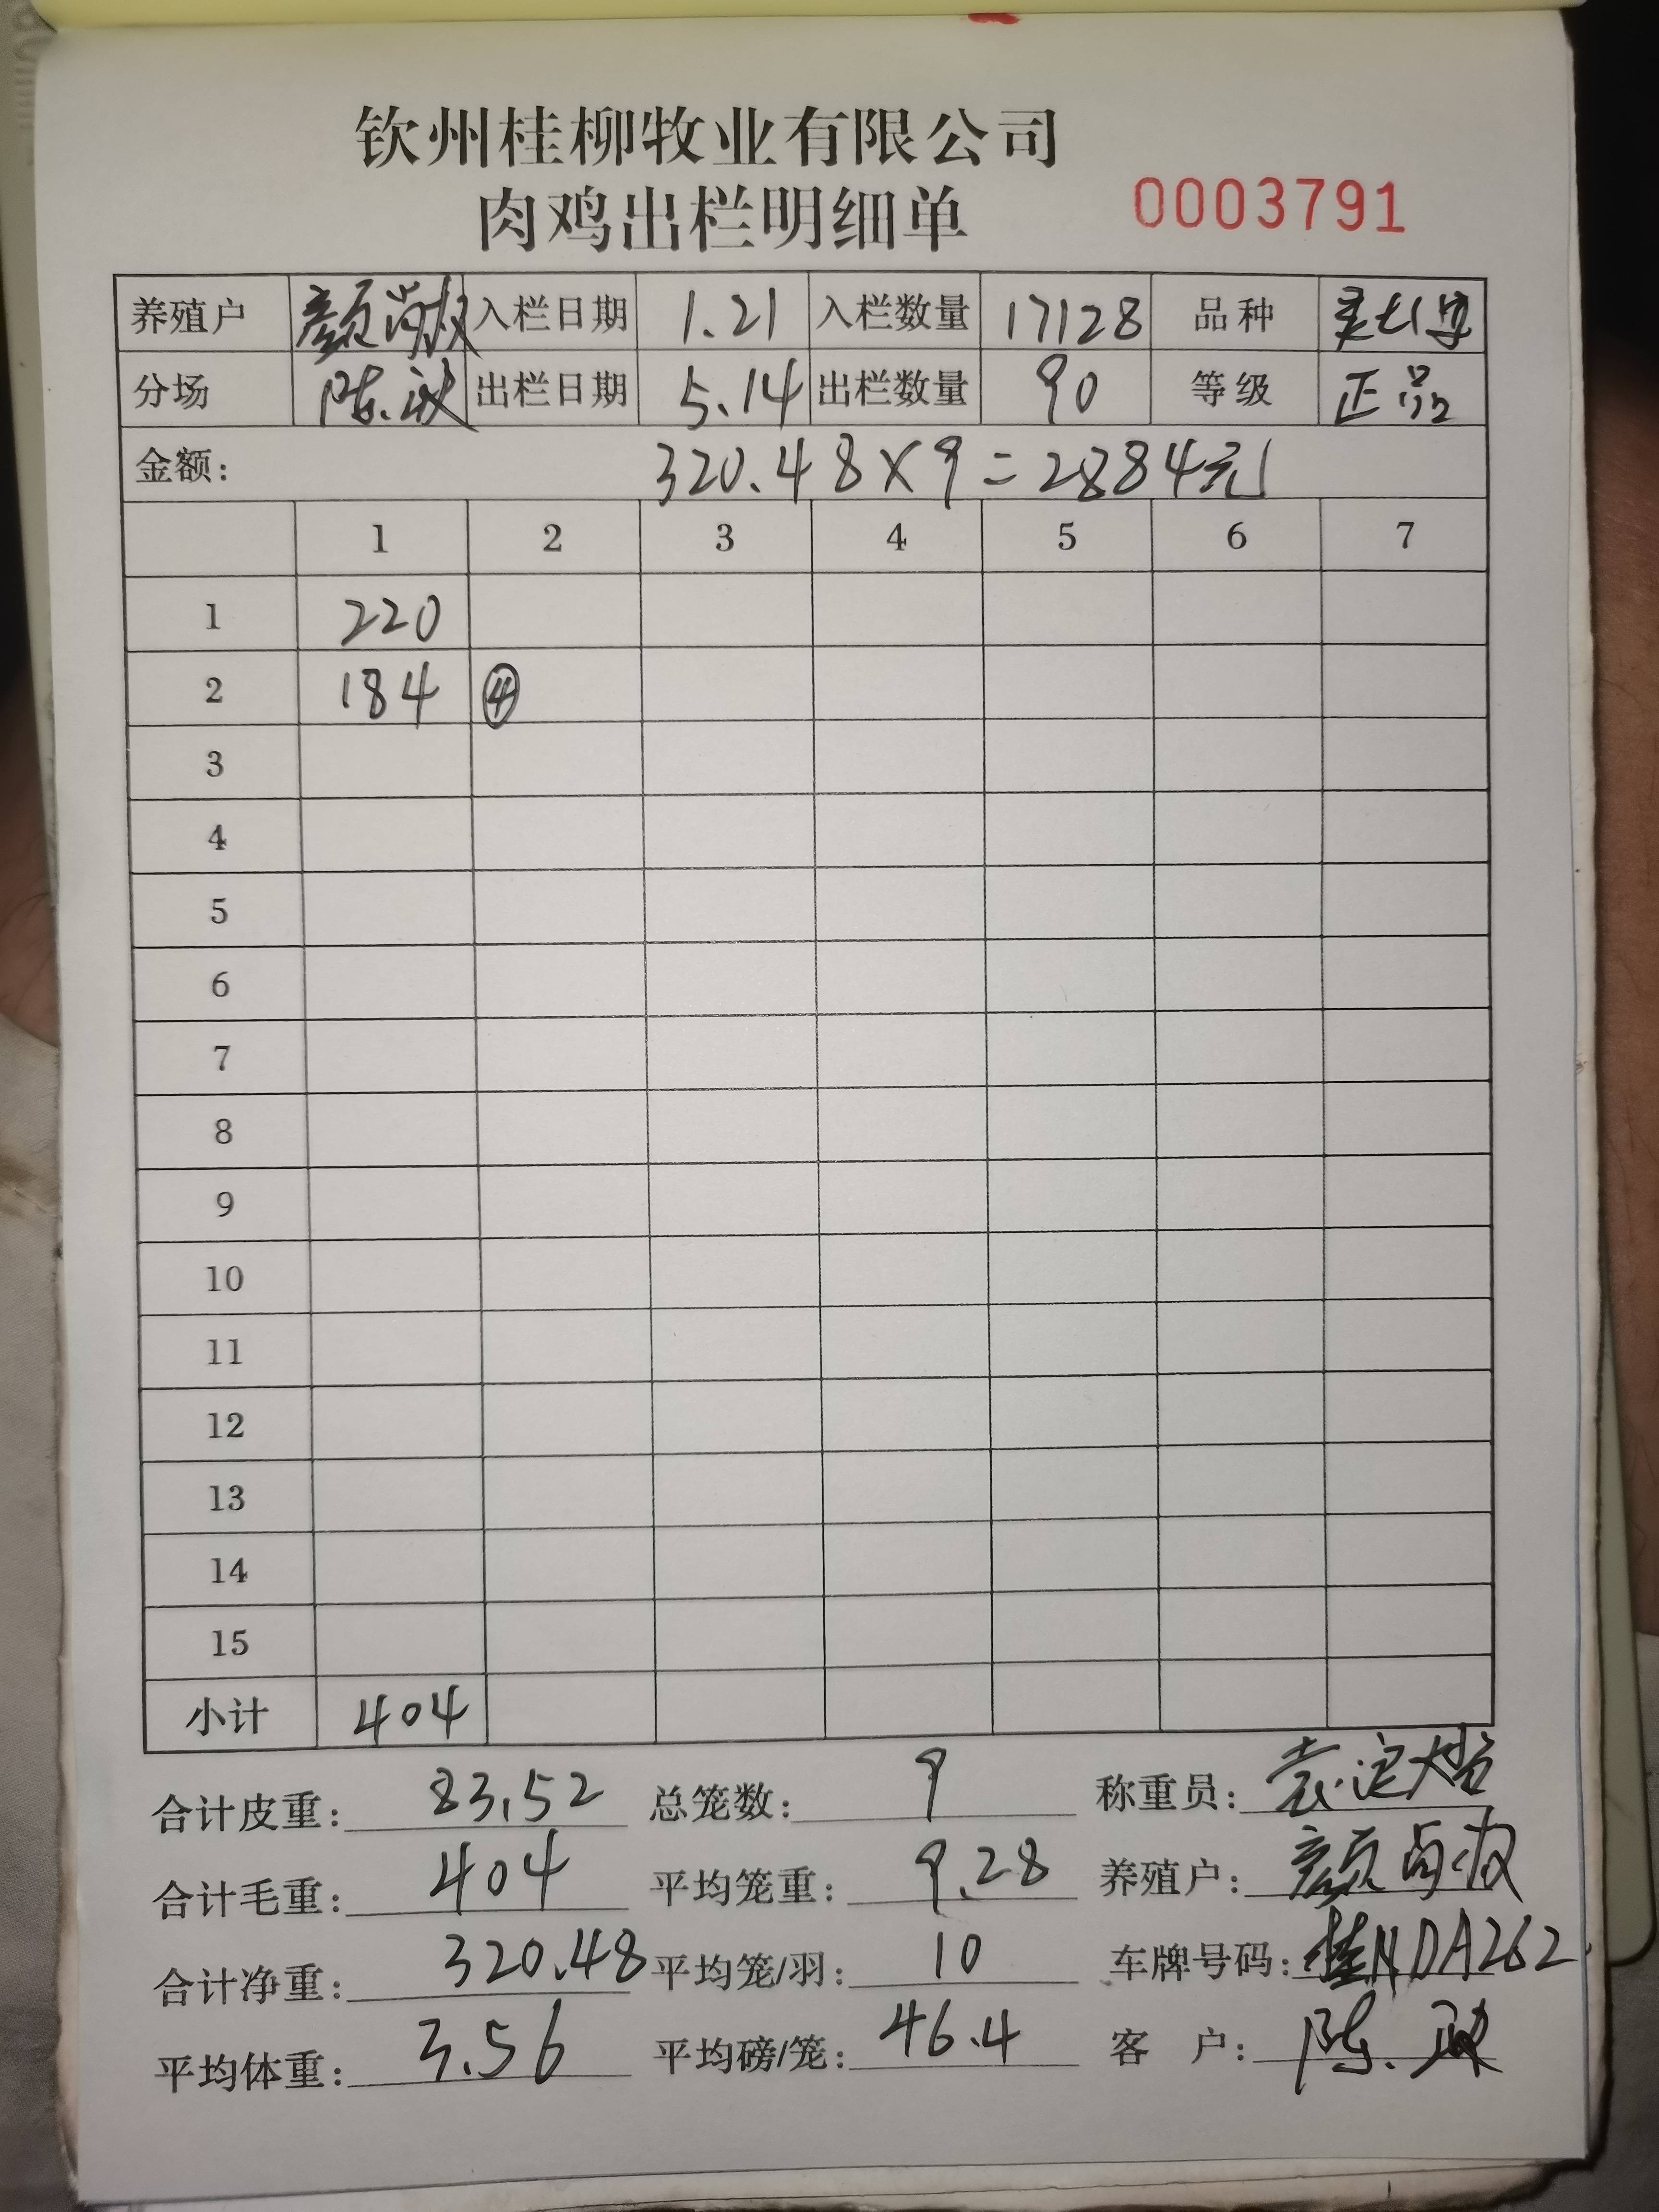 钦州桂柳牧业有限公司
肉鸡出栏明细单 0003791
养殖户 颜 入栏日期 1.21 入栏数量 17128 品种
分场 陈 出栏日期 5.14 出栏数量 90 等级 正品
金额: 320.48×9=2884元
1 2 3 4 5 6 7
1 220
2 184 ④
3
4
5
6
7
8
9
10
11
12
13
14
15
小计 404
合计皮重: 83.52 总笼数: 9 称重员: 袁
合计毛重: 404 平均笼重: 9.28 养殖户: 颜
合计净重: 320.48 平均笼/羽: 10 车牌号码: 桂NDA262
平均体重: 3.56 平均磅/笼: 46.4 客 户: 陈